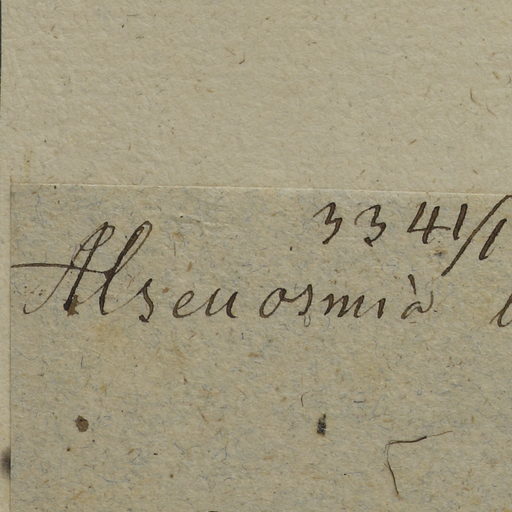 3341/1
Alseuosmia